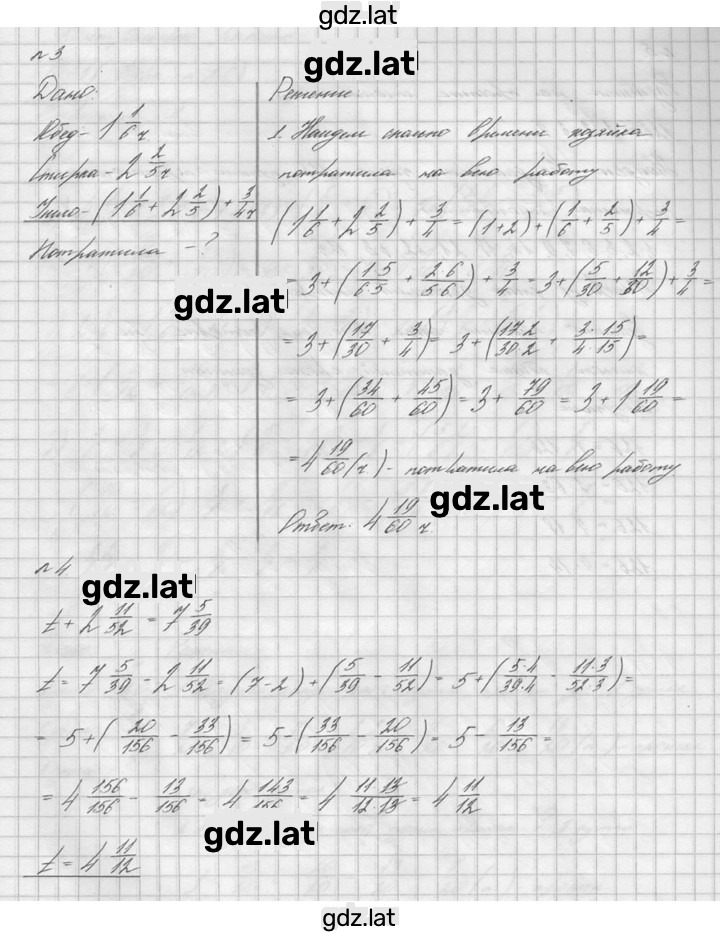 gdz.lat
№3
gdz.lat
Дано: Решение:
Обед - 1 1/6 ч.
Стирка - 2 2/5 ч.
- (1 1/6 + 2 2/5) + 3/4 ч
Потратила - ?
1. Найдем сколько времени хозяйка
потратила на всю работу
(1 1/6 + 2 2/5) + 3/4 = (1+2) + (1/6 + 2/5) + 3/4 =
gdz.lat
= 3 + (1·5/6·5 + 2·6/5·6) + 3/4 = 3 + (5/30 + 12/30) + 3/4 =
= 3 + (17/30 + 3/4) = 3 + (17·2/30·2 + 3·15/4·15) =
= 3 + (34/60 + 45/60) = 3 + 79/60 = 3 + 1 19/60 =
= 4 19/60 (ч.) - потратила на всю работу
gdz.lat
Ответ: 4 19/60 ч.
№4
gdz.lat
t + 2 11/52 = 7 5/39
t = 7 5/39 - 2 11/52 = (7-2) + (5/39 - 11/52) = 5 + (5·4/39·4 - 11·3/52·3) =
= 5 + (20/156 - 33/156) = 5 - (33/156 - 20/156) = 5 - 13/156 =
= 4 156/156 - 13/156 = 4 143/156 = 4 11·13/12·13 = 4 11/12
gdz.lat
t = 4 11/12
gdz.lat